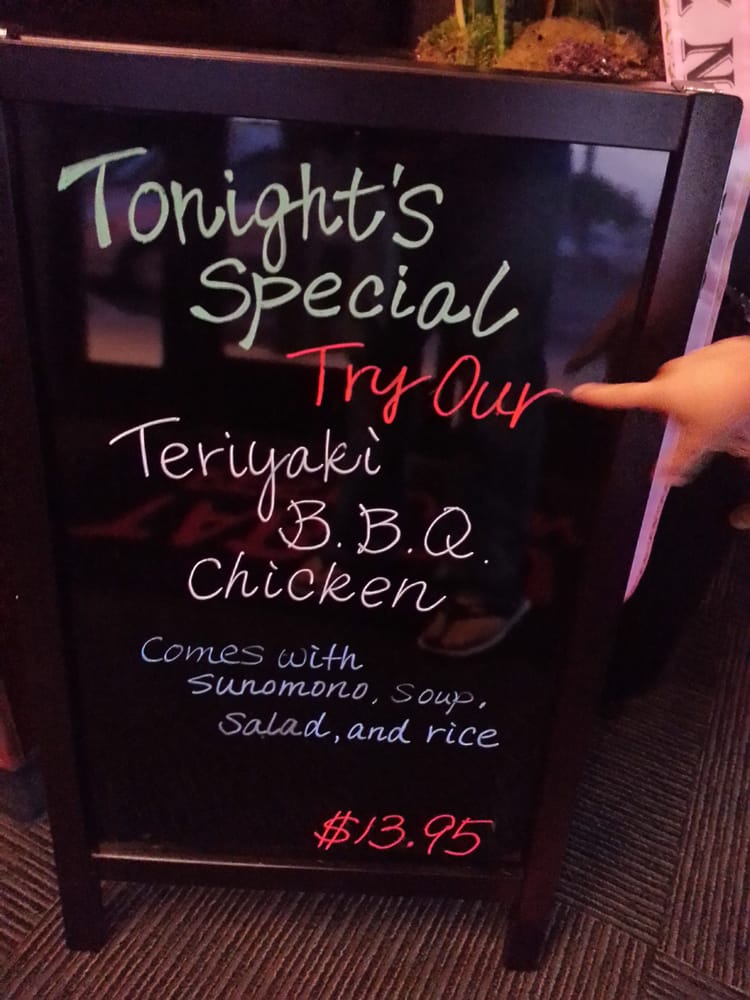 Tonight's
Special
Try Our
Teriyaki
B.B.Q.
Chicken
Comes with
sunomono, soup,
salad, and rice
$13.95